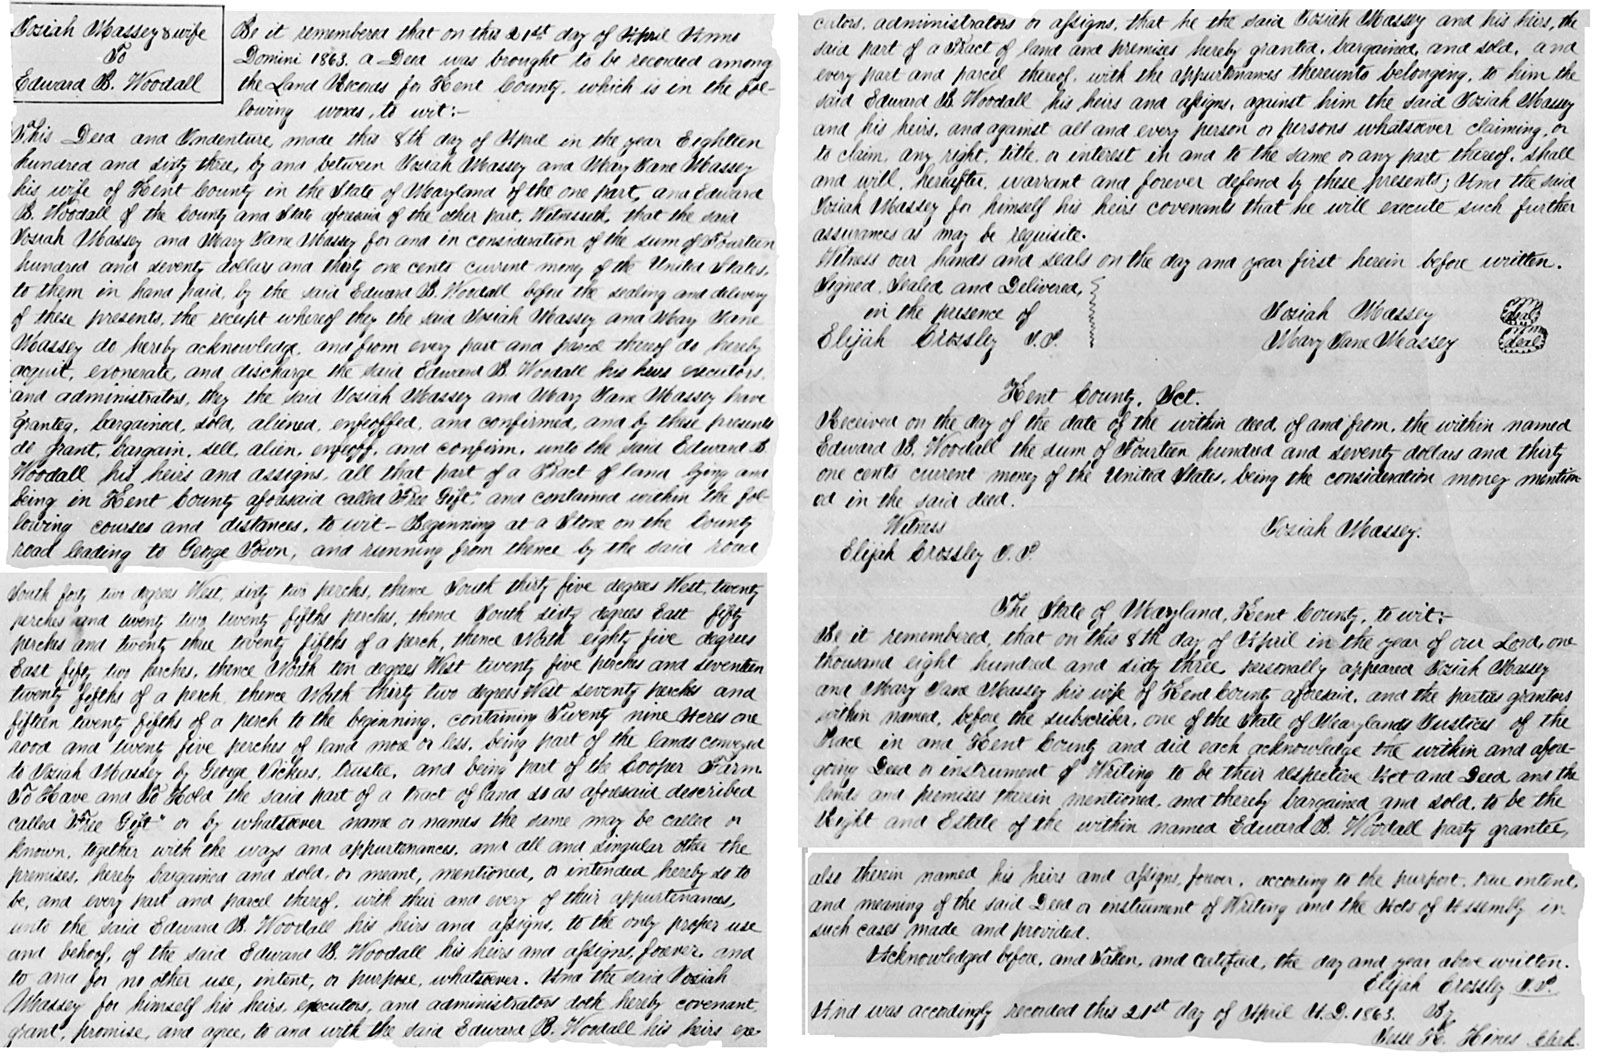 Josiah Massey & wife
To
Edward B. Woodall
Be it remembered that on this 21st day of April Anno
Domini 1863. a Deed was brought to be recorded among
the Land Records for Kent County, which is in the fol-
lowing words, to wit:-
This Deed and Indenture, made this 8th day of April in the year Eighteen
hundred and sixty three, by and between Josiah Massey and Mary Jane Massey
his wife of Kent County in the State of Maryland of the one part, and Edward
B. Woodall of the County and State aforesaid of the other part, Witnesseth, that the said
Josiah Massey and Mary Jane Massey for and in consideration of the sum of Fourteen
hundred and seventy dollars and thirty one cents current money of the United States,
to them in hand paid, by the said Edward B. Woodall before the sealing and delivery
of these presents, the receipt whereof they the said Josiah Massey and Mary Jane
Massey do hereby acknowledge, and from every part and parcel thereof do hereby
acquit, exonerate, and discharge the said Edward B. Woodall his heirs executors,
and administrators, they the said Josiah Massey and Mary Jane Massey have
granted, bargained, sold, aliened, enfeoffed, and confirmed, and by these presents
do grant, bargain, sell, alien, enfeoff, and confirm, unto the said Edward B.
Woodall his heirs and assigns, all that part of a Tract of land lying and
being in Kent County aforesaid called "Free Gift," and contained within the fol-
lowing courses and distances, to wit - Beginning at a Stone on the County
road leading to George Town, and running from thence by the said road
South forty two degrees West, sixty two perches, thence South thirty five degrees West, twenty
perches and twenty two twenty fifths perches, thence South sixty degrees East fifty
perches and twenty three twenty fifths of a perch, thence North eighty five degrees
East fifty two perches, thence North ten degrees West twenty five perches and seventeen
twenty fifths of a perch, thence North thirty two degrees West seventy perches and
fifteen twenty fifths of a perch to the beginning, containing Twenty nine Acres one
rood and twenty five perches of land more or less, being part of the lands conveyed
to Josiah Massey by George Vickers, trustee, and being part of the Cooper Farm.
To Have and To Hold the said part of a tract of land so as aforesaid described
called "Free Gift" or by whatsoever name or names the same may be called or
known, together with the ways and appurtenances, and all and singular other the
premises, hereby bargained and sold, or meant, mentioned, or intended hereby so to
be, and every part and parcel thereof, with their and every of their appurtenances,
unto the said Edward B. Woodall his heirs and assigns, to the only proper use
and behoof, of the said Edward B. Woodall his heirs and assigns, forever, and
to and for no other use, intent, or purpose, whatsoever. And the said Josiah
Massey for himself his heirs, executors, and administrators doth hereby covenant,
grant, promise, and agree, to and with the said Edward B. Woodall his heirs exe-
cutors, administrators or assigns, that he the said Josiah Massey and his heirs, the
said part of a Tract of land and premises hereby granted, bargained, and sold, and
every part and parcel thereof, with the appurtenances thereunto belonging, to him the
said Edward B. Woodall his heirs and assigns, against him the said Josiah Massey
and his heirs, and against all and every person or persons whatsoever claiming, or
to claim, any right, title, or interest in and to the same or any part thereof, shall
and will, hereafter, warrant and forever defend by these presents; And the said
Josiah Massey for himself his heirs covenants that he will execute such further
assurances as may be requisite.
Witness our hands and seals on the day and year first herein before written.
Signed, Sealed and Delivered,
in the presence of
Elijah Crossley J.P.
Josiah Massey Seal
Mary Jane Massey Seal
Kent County, Sct.
Received on the day of the date of the within deed, of and from, the within named
Edward B. Woodall the sum of Fourteen hundred and seventy dollars and thirty
one cents current money of the United States, being the consideration money mention-
ed in the said deed.
Witness
Josiah Massey.
Elijah Crossley J.P.
The State of Maryland, Kent County, to wit:-
Be it remembered, that on this 8th day of April in the year of our Lord, one
thousand eight hundred and sixty three, personally appeared Josiah Massey
and Mary Jane Massey his wife of Kent County aforesaid, and the parties grantors
within named, before the subscriber, one of the State of Marylands Justices of the
Peace in and Kent County and did each acknowledge the within and afore-
going Deed or instrument of Writing to be their respective Act and Deed and the
lands and premises therein mentioned, and thereby bargained and sold, to be the
Right and Estate of the within named Edward B. Woodall party grantee,
also therein named his heirs and assigns, forever, according to the purport, true intent,
and meaning of the said Deed or instrument of Writing and the Acts of Assembly in
such cases made and provided.
Acknowledged before, and Taken, and certified, the day and year above written.
Elijah Crossley J.P.
And was accordingly recorded this 21st day of April A.D. 1863. By
Jesse K. Hines Clerk.